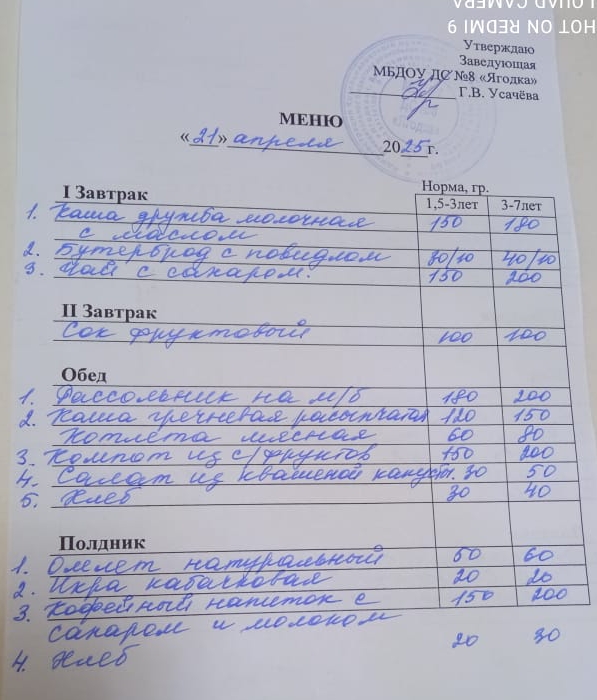 HOT ON REDMI 9
LQUAD CAMERA
Утверждаю
Заведующая
МБДОУ ДС №8 «Ягодка»
Г.В. Усачёва
МЕНЮ
«21» апреля 2025г.
Норма, гр.
I Завтрак 1,5-3лет 3-7лет
1. Каша дружба молочная 150 180
с маслом
2. Бутерброд с повидлом 30/10 40/10
3. Чай с сахаром. 150 200
II Завтрак
Сок фруктовый 100 100
Обед
1. Рассольник на м/б 180 200
2. Каша гречневая рассыпчатая 120 150
Котлета мясная 60 80
3. Компот из с/фруктов 150 200
4. Салат из квашеной капусты. 30 50
5. Хлеб 30 40
Полдник
1. Омлет натуральный 50 60
2. Икра кабачковая 20 20
3. Кофейный напиток с 150 200
сахаром и молоком
4. Хлеб 20 30